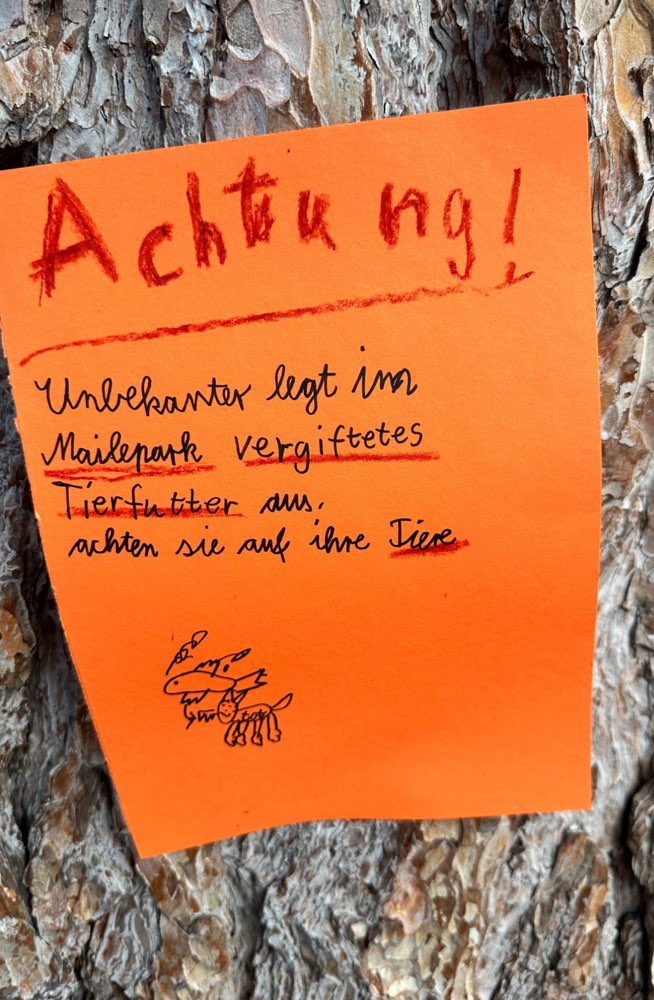 Achtung!
Unbekanter legt im
Mailepark vergiftetes
Tierfutter aus.
achten sie auf ihre Tiere